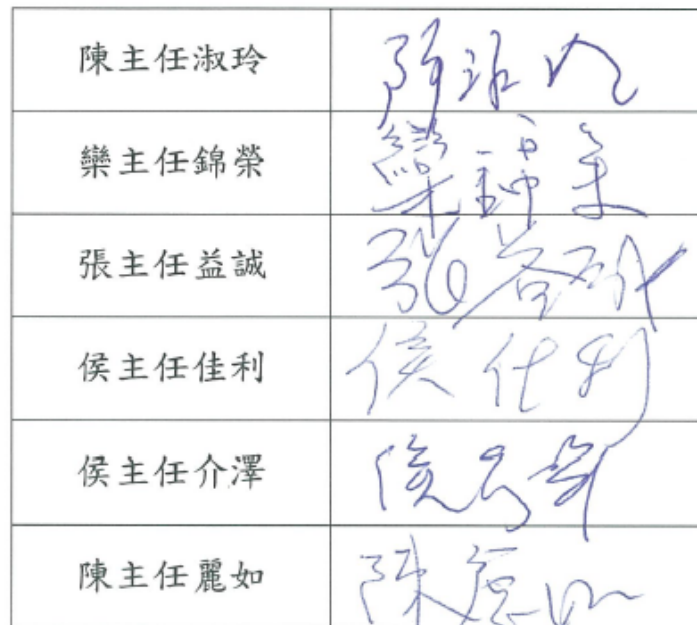 陳主任淑玲
欒主任錦榮 欒錦榮
張主任益誠 張益誠
侯主任佳利 侯佳利
侯主任介澤 侯
陳主任麗如 陳麗如